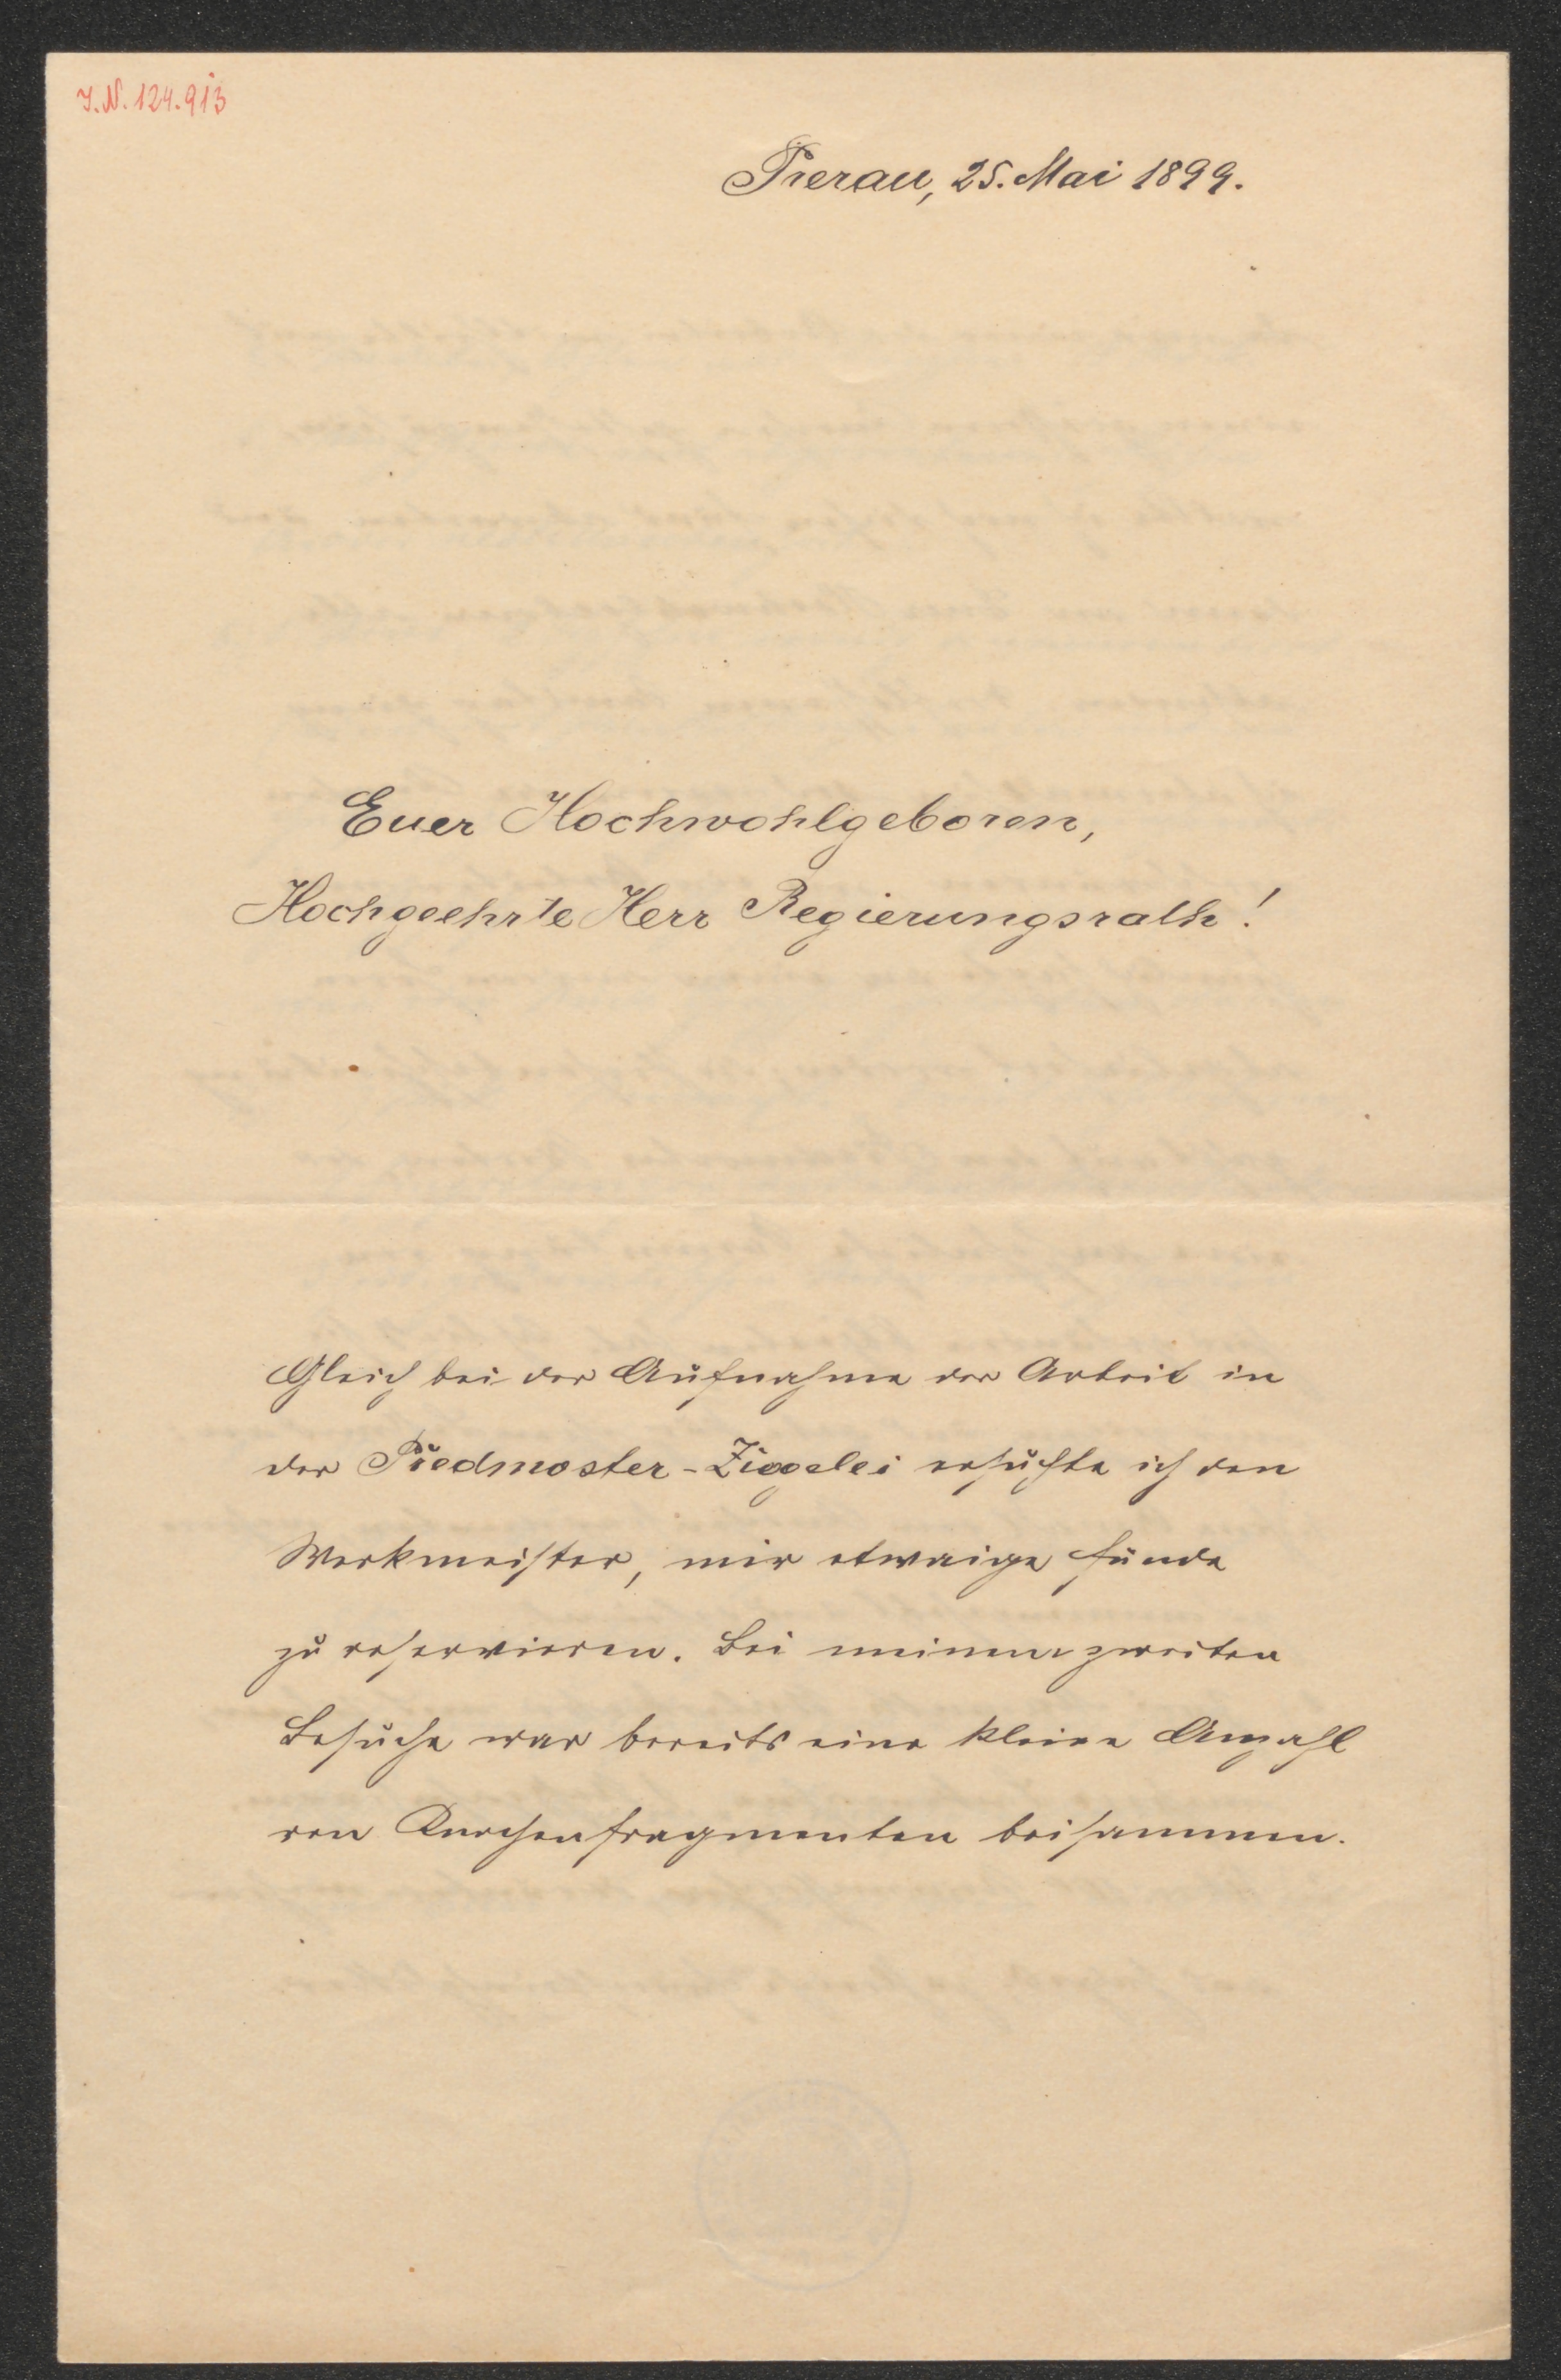 J.N. 124.913
Prerau, 25. Mai 1899.
Euer Hochwohlgeboren,
Hochgeehrte Herr Regierungsrath!
Gleich bei der Aufnahme der Arbeit in
der Předmoster-Ziegelei ersuchte ich den
Werkmeister, mir etwaige Funde
zu reservieren. Bei meinem zweiten
Besuche war bereits eine kleine Anzahl
von Knochenfragmenten beisammen.